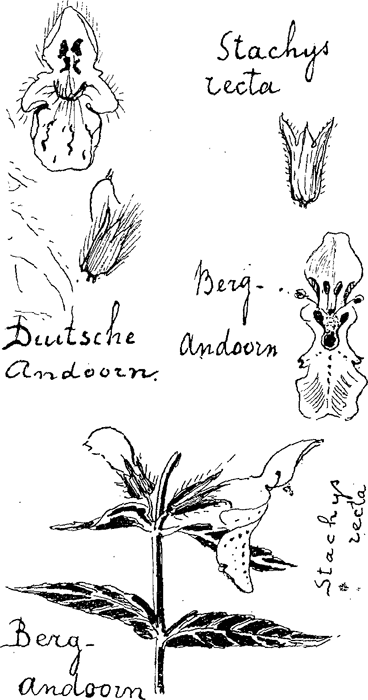 Stachys
recta
Berg-
andoorn
Duitsche
Andoorn.
Stachys
recta
Berg-
andoorn